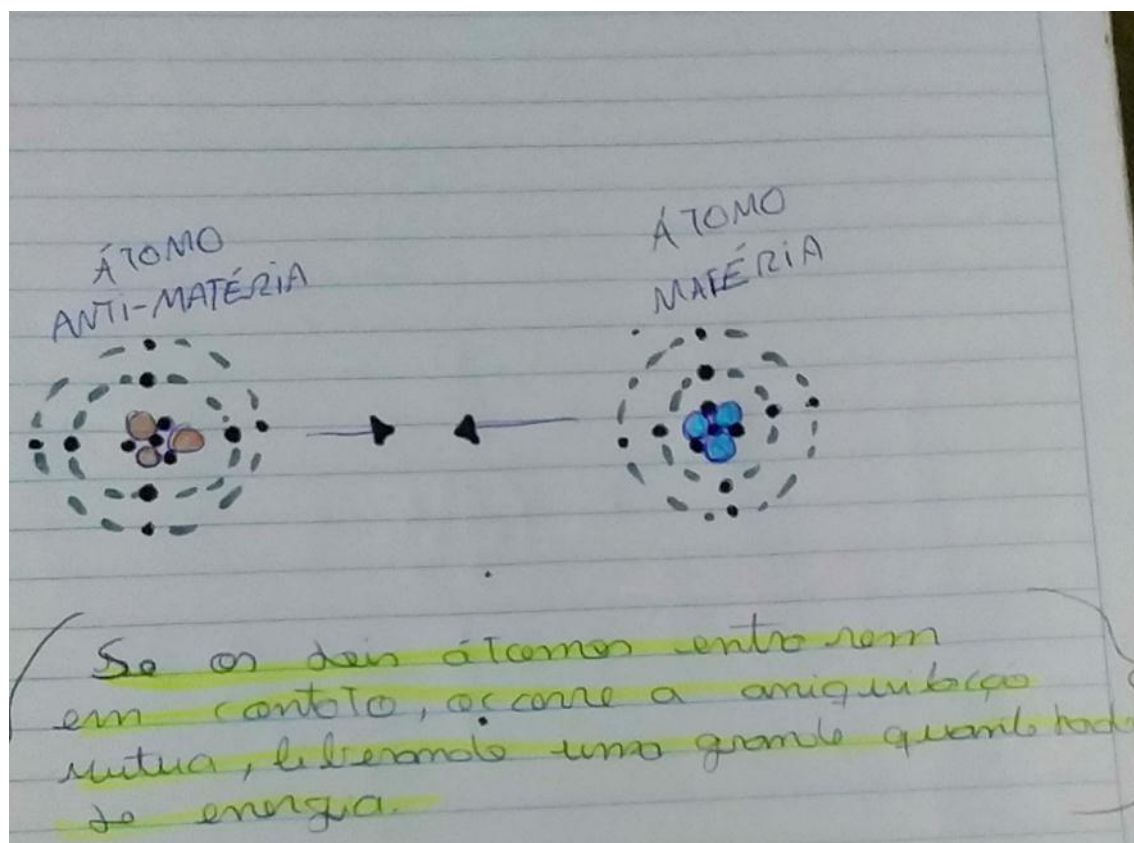 ÁTOMO
ANTI-MATÉRIA
ÁTOMO
MATÉRIA
Se os dois átomos entrarem
em contato, ocorre a aniquilação
mutua, liberando uma grande quantidade
de energia.